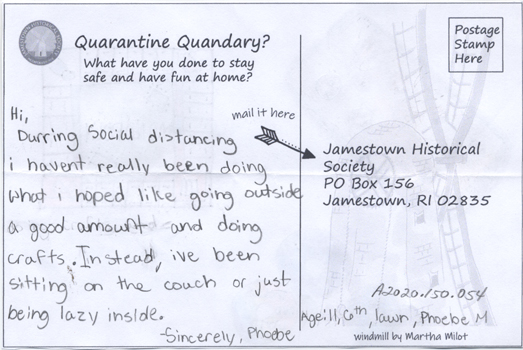 Quarantine Quandary?
What have you done to stay
safe and have fun at home?
Hi,
Durring Social distancing
i havent really been doing
what i hoped like going outside
a good amount and doing
crafts. Instead, ive been
sitting on the couch or just
being lazy inside.
-Sincerely, Phoebe
Postage
Stamp
Here
mail it here
Jamestown Historical
Society
PO Box 156
Jamestown, RI 02835
A2020.150.054
Age:11, 6th, lawn, Phoebe M
windmill by Martha Milot